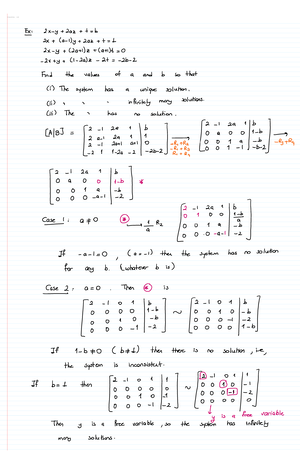 Ex: 2x-y+2az+t=b
2x+(a-1)y+2az+t=1
2x-y+(2a+1)z+(a+1)t=0
-2x+y+(1-2a)z-2t=-2b-2
Find the values of a and b so that
(i) The system has a unique solution.
(ii) " " " infinitely many solutions.
(iii) The " has no solution.
[A|B] = [2 -1 2a 1 | b
2 a-1 2a 1 | 1
2 -1 2a+1 a+1 | 0
-2 1 1-2a -2 | -2b-2]
-R1+R2
-R1+R3
R1+R4
[2 -1 2a 1 | b
0 a 0 0 | 1-b
0 0 1 a | -b
0 0 1 -1 | -b-2]
-R3+R4
[2 -1 2a 1 | b
0 a 0 0 | 1-b
0 0 1 a | -b
0 0 0 -a-1 | -2] *
Case 1: a≠0 * 1/a R2
[2 -1 2a 1 | b
0 1 0 0 | 1-b/a
0 0 1 a | -b
0 0 0 -a-1 | -2]
If -a-1=0, (a=-1) then the system has no solution
for any b. (whatever b is)
Case 2: a=0. Then * is
[2 -1 0 1 | b
0 0 0 0 | 1-b
0 0 1 0 | -b
0 0 0 -1 | -2] ~ [2 -1 0 1 | b
0 0 1 0 | -b
0 0 0 -1 | -2
0 0 0 0 | 1-b]
If 1-b≠0 (b≠1) then there is no solution, i.e.,
the system is inconsistent.
If b=1 then [2 -1 0 1 | 1
0 0 0 0 | 0
0 0 1 0 | -1
0 0 0 -1 | -2] ~ [2 -1 0 1 | 1
0 0 1 0 | -1
0 0 0 -1 | -2
0 0 0 0 | 0]
y is a free variable
Then y is a free variable, so the system has infinitely
many solutions.